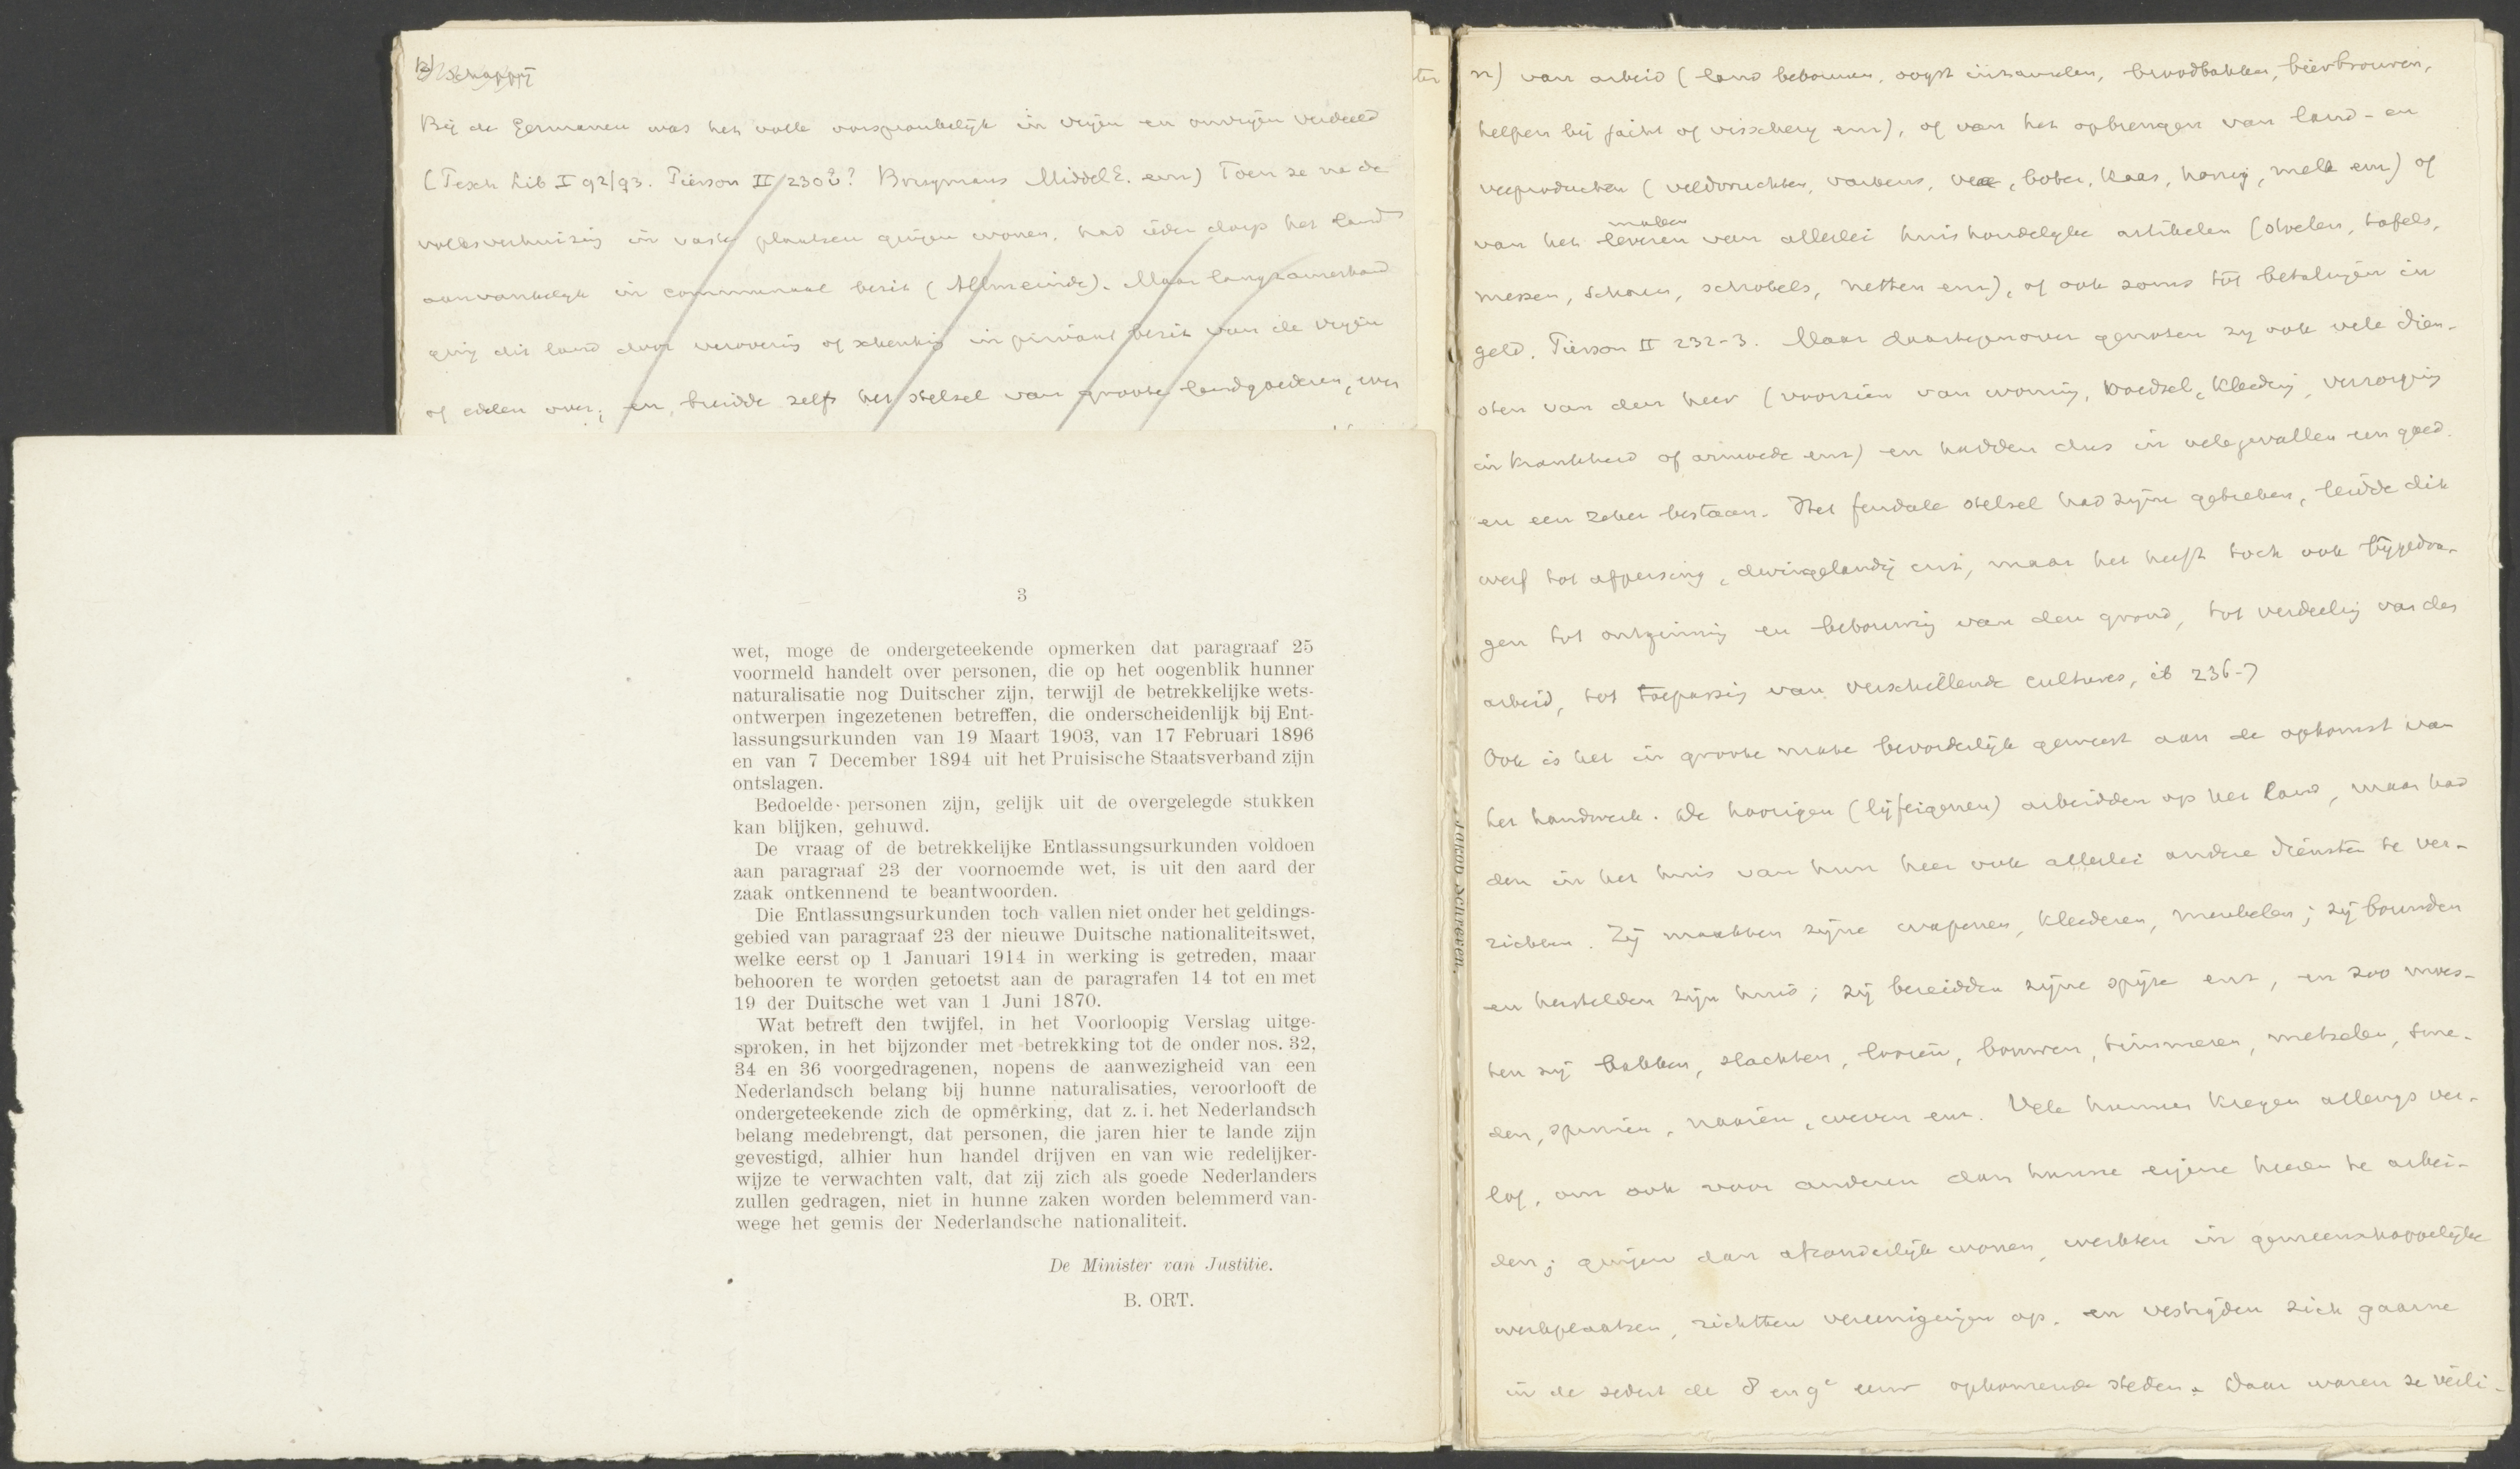 12) schappij
Bij de Germanen was het volk oorspronkelijk in vrijen en onvrijen verdeeld
(Tesch Lib I 92/93. Pierson II 230 ? Brugmans Middel E. enz) Toen ze na de
volksverhuizing in vaste plaatsen gingen wonen, had ieder dorp het land
aanvankelijk in communaal bezit (Allmeinde). Maar langzamerhand
ging dit land door verovering of schenking in privaat bezit van de vrijen
of edelen over; en breidde zelfs het stelsel van groote landgoederen, over
3
wet, moge de ondergeteekende opmerken dat paragraaf 25
voormeld handelt over personen, die op het oogenblik hunner
naturalisatie nog Duitscher zijn, terwijl de betrekkelijke wets-
ontwerpen ingezetenen betreffen, die onderscheidenlijk bij Ent-
lassungsurkunden van 19 Maart 1903, van 17 Februari 1896
en van 7 December 1894 uit het Pruisische Staatsverband zijn
ontslagen.
Bedoelde personen zijn, gelijk uit de overgelegde stukken
kan blijken, gehuwd.
De vraag of de betrekkelijke Entlassungsurkunden voldoen
aan paragraaf 23 der voornoemde wet, is uit den aard der
zaak ontkennend te beantwoorden.
Die Entlassungsurkunden toch vallen niet onder het geldings-
gebied van paragraaf 23 der nieuwe Duitsche nationaliteitswet,
welke eerst op 1 Januari 1914 in werking is getreden, maar
behooren te worden getoetst aan de paragrafen 14 tot en met
19 der Duitsche wet van 1 Juni 1870.
Wat betreft den twijfel, in het Voorloopig Verslag uitge-
sproken, in het bijzonder met betrekking tot de onder nos. 32,
34 en 36 voorgedragenen, nopens de aanwezigheid van een
Nederlandsch belang bij hunne naturalisaties, veroorlooft de
ondergeteekende zich de opmerking, dat z. i. het Nederlandsch
belang medebrengt, dat personen, die jaren hier te lande zijn
gevestigd, alhier hun handel drijven en van wie redelijker-
wijze te verwachten valt, dat zij zich als goede Nederlanders
zullen gedragen, niet in hunne zaken worden belemmerd van-
wege het gemis der Nederlandsche nationaliteit.
De Minister van Justitie.
B. ORT.
ter
Jakob Schreven.
12) van arbeid (land bebouwen, oogst inzamelen, broodbakken, bierbrouwen,
helpen bij jacht of visscherij enz), of van het opbrengen van land- en
veeproducten (veldvruchten, varkens, vee, boter, kaas, honig, melk enz) of
maken
van het leveren van allerlei huishoudelijke artikelen (stoelen, tafels,
messen, schalen, schotels, netten enz), of ook soms tot betalingen in
geld. Pierson II 232-3. Maar daartegenover genoten zij ook vele dien-
sten van den heer (voorzien van woning, voedsel, kleeding, verzorging
in krankheid of armoede enz) en hadden dus in vele gevallen een goed
en een zeker bestaan. Het feudale stelsel had zijne gebreken, leidde dik
werf tot afpersing, dwingelandij enz, maar het heeft toch ook bijgedra-
gen tot ontginning en bebouwing van den grond, tot verdeeling van den
arbeid, tot toepassing van verschillende cultures, ib 236-7
Ook is het in groote mate bevorderlijk geweest aan de opkomst van
het handwerk. De hoorigen (lijfeigenen) arbeidden op het land, maar had
den in het huis van hun heer ook allerlei andere diensten te ver-
richten. Zij maakten zijne wapenen, kleederen, meubelen; zij bouwden
en herstelden zijn huis; zij bereidden zijne spijze enz, en zoo moes-
ten zij bakken, slachten, looien, bouwen, timmeren, metselen, sme-
den, spinnen, naaien, weven enz. Vele hunner kregen allengs ver-
lof, om ook voor anderen dan hunne eigene heeren te arbei-
den; gingen dan afzonderlijk wonen, werkten in gemeenschappelijke
werkplaatsen, richtten vereenigingen op, en vestigden zich gaarne
in de sedert de 8 en 9e eeuw opkomende steden. Daar waren ze veili-